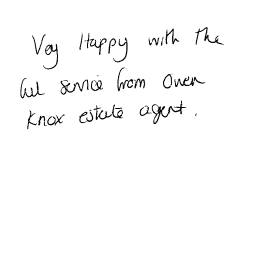 Very Happy with the
full service from Owen
Knox estate agent.